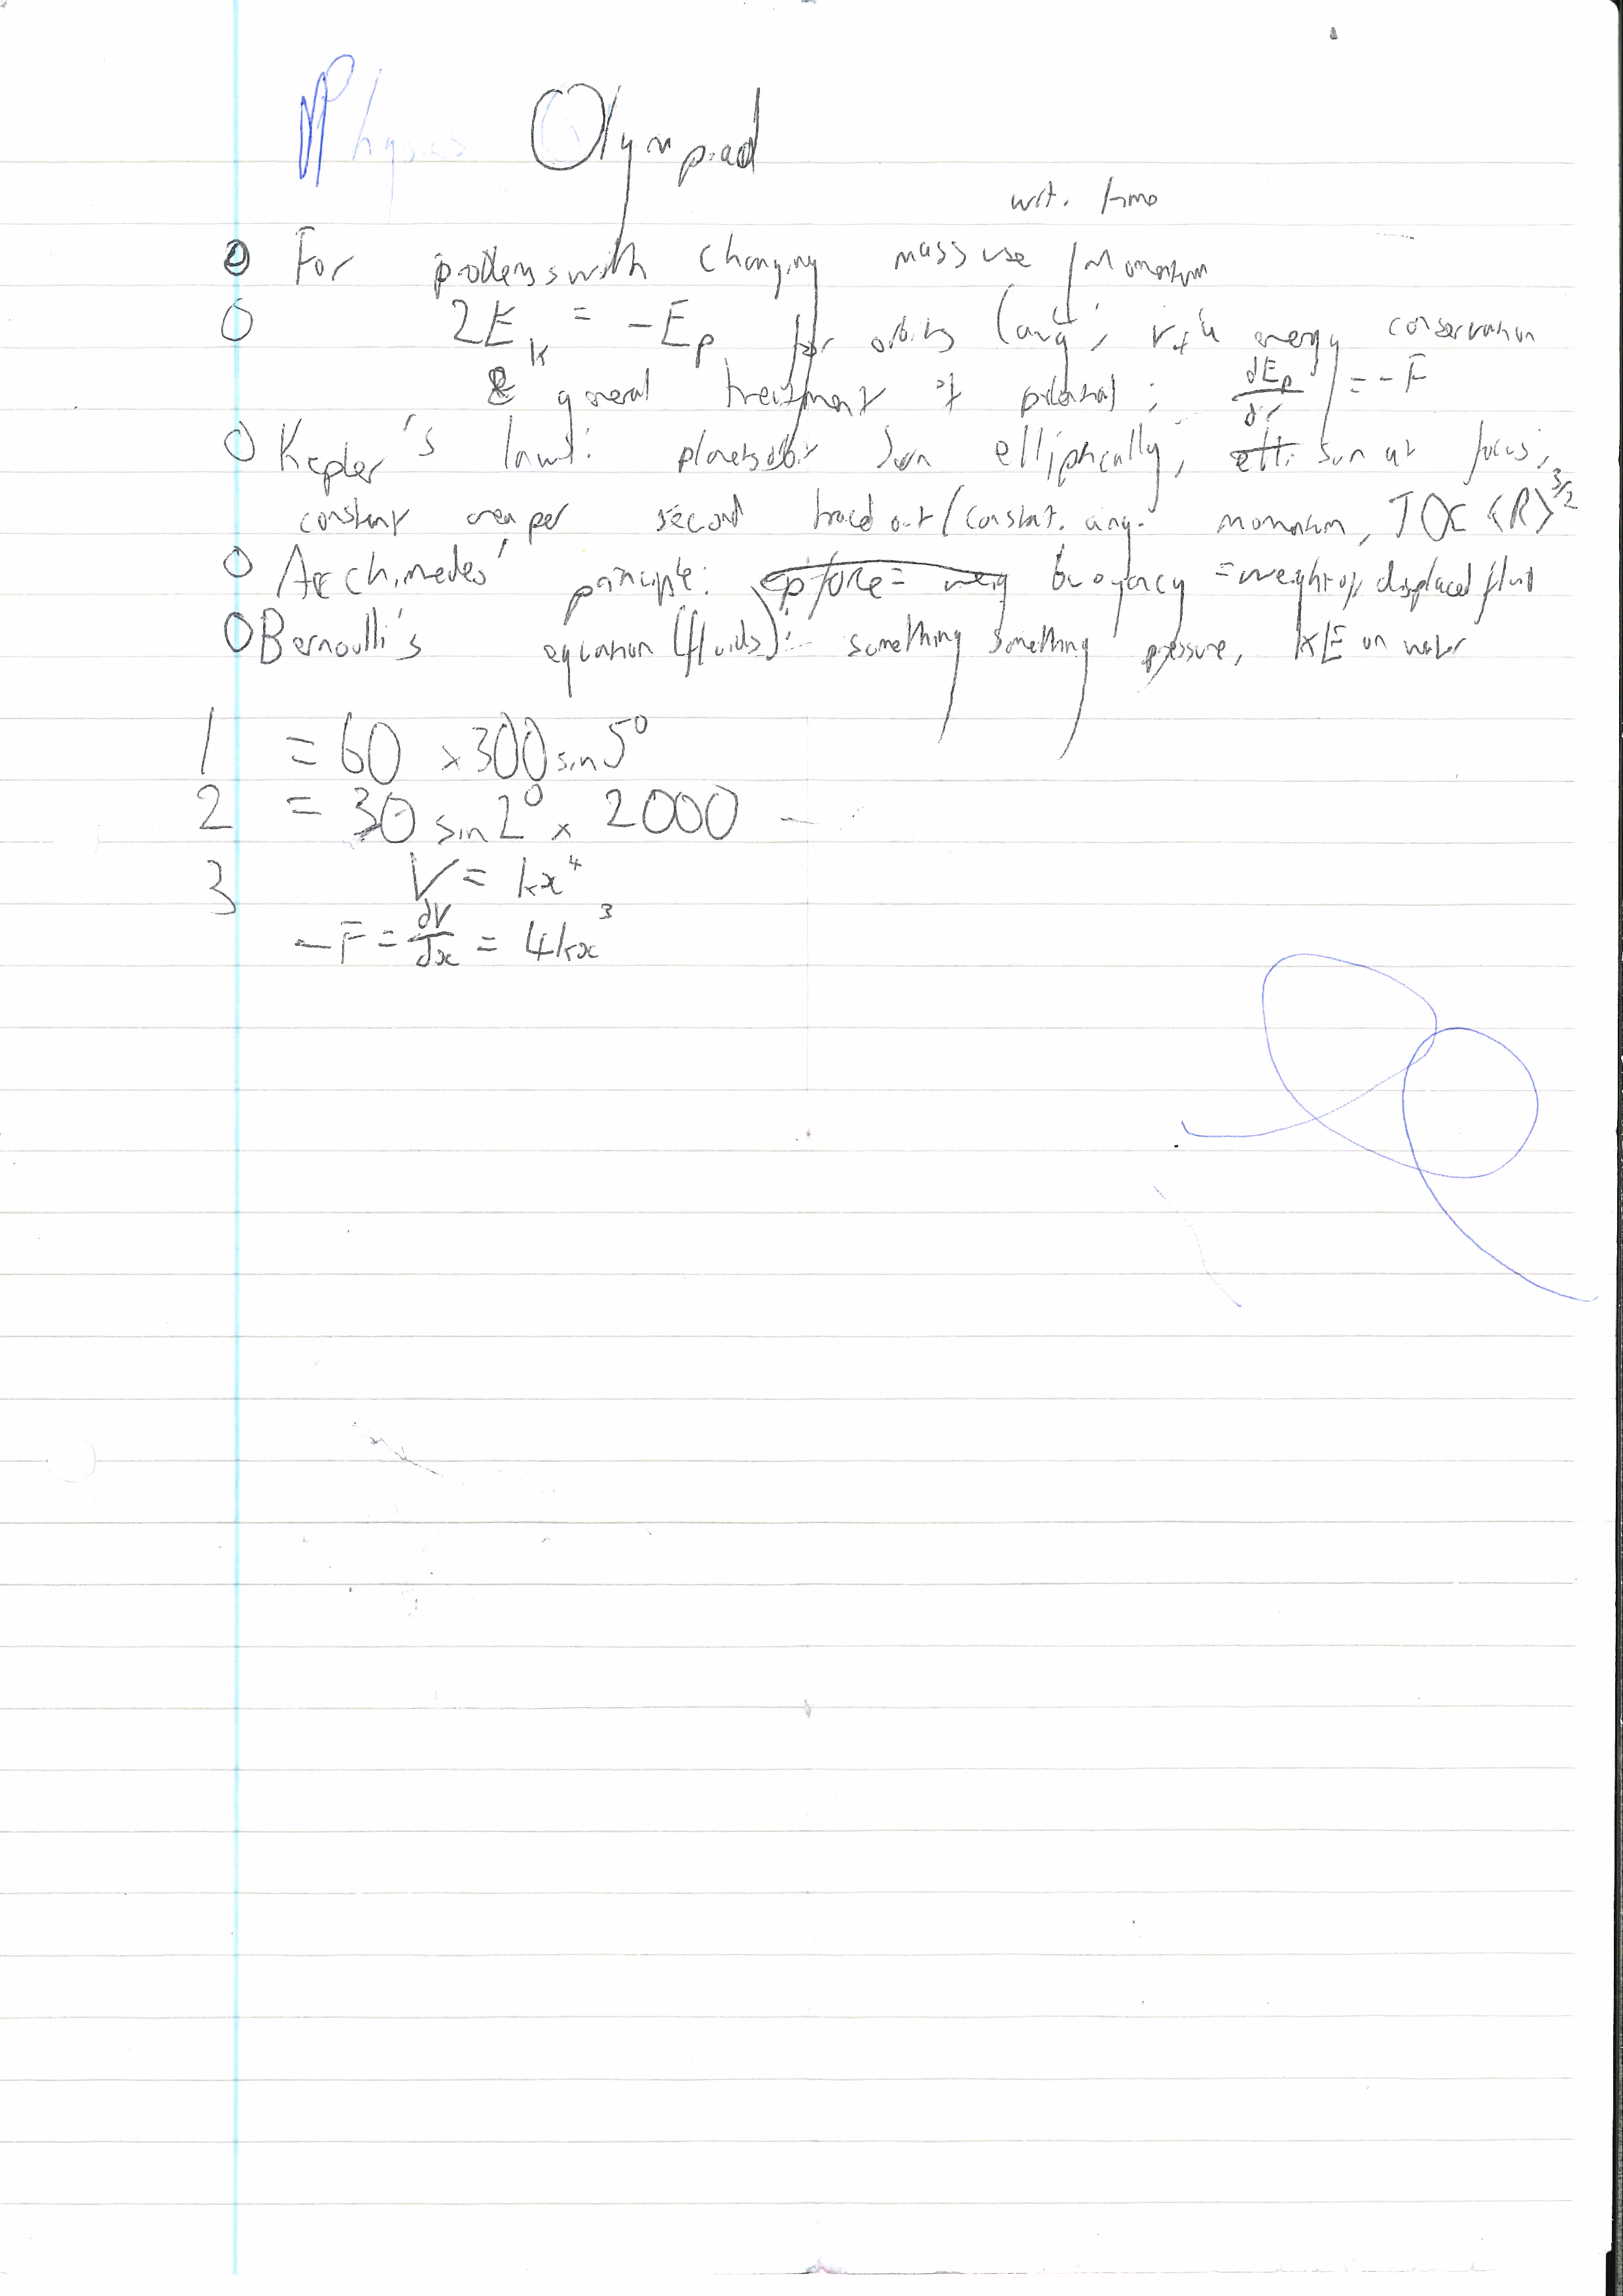 Physics Olympiad
wrt. time
For problems with changing mass use momentum
2E_k = -E_p for orbits (avg; with energy conservation
& general treatment of potential; dE_p/dr = -F
Kepler's laws: planets orbit Sun elliptically, sun at focus,
constant area per second traced out/constat. ang. momentum, T ∝ ⟨R⟩^3/2
Archimedes' principle: buoyancy = weight of displaced fluid
Bernoulli's equation (fluids): something something pressure, KE on water
1 = 60 × 300 sin 5°
2 = 30 sin 2° × 2000
3 V = kx⁴
-F = dV/dx = 4kx³